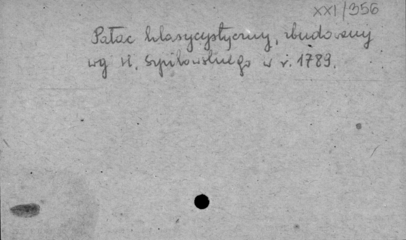 XXI/956
Pałac klasycystyczny, zbudowany
wg H. Szpilowskiego w r. 1789.